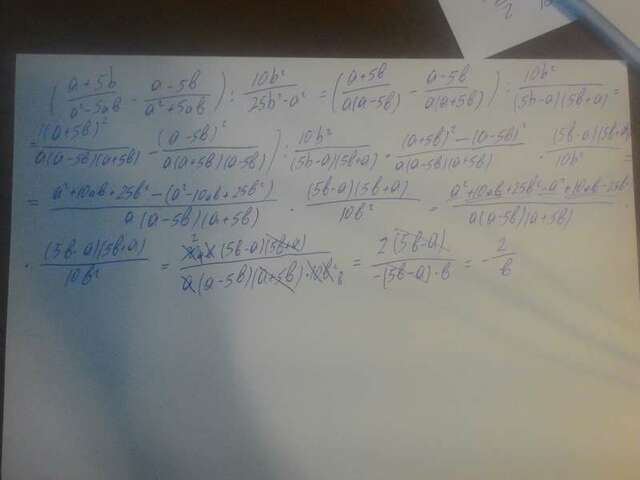 ( (a+5b)/(a²-5ab) - (a-5b)/(a²+5ab) ) : 10b²/(25b²-a²) = ( (a+5b)/(a(a-5b)) - (a-5b)/(a(a+5b)) ) : 10b²/((5b-a)(5b+a)) =
= ( (a+5b)²/(a(a-5b)(a+5b)) - (a-5b)²/(a(a+5b)(a-5b)) ) : 10b²/((5b-a)(5b+a)) = ((a+5b)²-(a-5b)²)/(a(a-5b)(a+5b)) · (5b-a)(5b+a)/10b² =
= (a²+10ab+25b²-(a²-10ab+25b²))/(a(a-5b)(a+5b)) · (5b-a)(5b+a)/10b² = (a²+10ab+25b²-a²+10ab-25b²)/(a(a-5b)(a+5b)) ·
· (5b-a)(5b+a)/10b² = 20ab(5b-a)(5b+a)/(a(a-5b)(a+5b)·10b²) = 2(5b-a)/(-(5b-a)·b) = -2/b